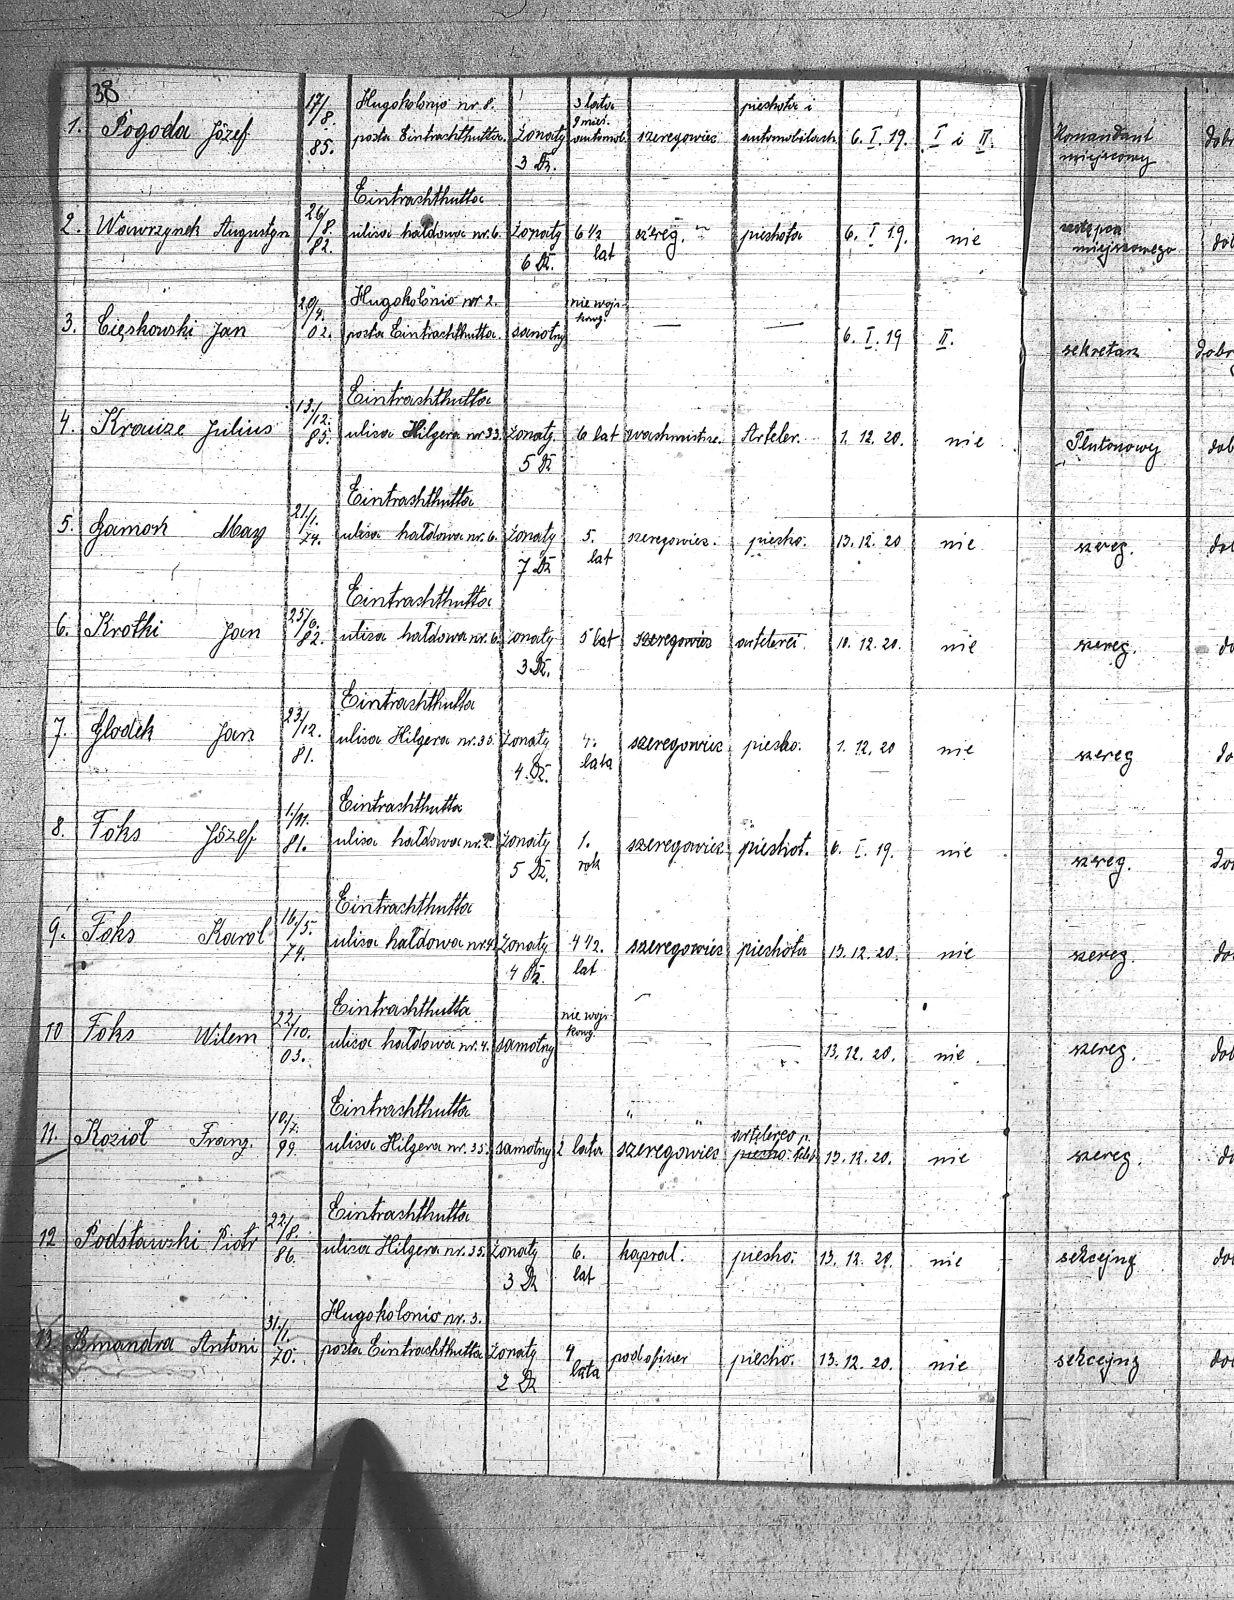 38
1. Pogoda Józef 17/8. 85. Hugokolonio nr. 8. posta Eintrachthutta. żonaty 3 Dz. 3 lata 9 mieś. automob. szeregowiec piechota i automobilach 6. I. 19. I i II. Komandant miejscowy
2. Wawrzynek Augustyn 26/8. 82. Eintrachthutta ulica hałdowa nr. 6. żonaty 6 Dz. 6 1/2 lat szereg. piechota 6. I 19. nie zastępca miejscowego
3. Cięskowski Jan 02. Hugokolonio nr 2. posta Eintrachthutta. samotny nie wojskowy. — — 6. I. 19 II. sekretarz
4. Krauize Julius 13/12. 85. Eintrachthutta ulica Hilgera nr 33. żonaty. 5 Dz 6 lat wachmistrz. Arteler. 1. 12. 20. nie Plutonowy
5. Gamoń Max 21/1. 74. Eintrachthutta ulica hałdowa nr. 6. żonaty 7 Dz 5. lat szeregowiec. piecho. 13. 12. 20 nie szereg.
6. Krotki Jan 25/6. 82. Eintrachthutta ulica hałdowa nr. 6. żonaty 3 Dz. 5 lat szeregowiec artelerei. 10. 12. 20. nie szereg.
7. Glodek Jan 23/12. 81. Eintrachthutta ulica Hilgera nr. 35. żonaty 4. Dz. 4. lata szeregowiec piecho. 1. 12. 20 nie szereg
8. Foks Józef 1./11. 81. Eintrachthutta ulica hałdowa nr. 2. żonaty 5 Dz. 1. rok szeregowiec piechot. 6. I. 19. nie szereg.
9. Foks Karol 16./5. 74. Eintrachthutta ulica hałdowa nr. 4. żonaty 4 Dz. 4 1/2. lat szeregowiec piechota 13. 12. 20. nie szereg.
10 Foks Wilem 22/10. 03. Eintrachthutta ulica hałdowa nr. 4. samotny nie wojskowy. — 13. 12. 20. nie. szereg.
11. Kozioł Franz. 10/7. 99. Eintrachthutta ulica Hilgera nr. 35. samotny 2 lata szeregowiec artilereo p. piecho. 13. 12. 20. nie szereg.
12 Podstawski Piotr 22/8. 86. Eintrachthutta ulica Hilgera nr. 35. żonaty 3 Dz 6. lat kapral. piecho. 13. 12. 20. nie sekcejny
13. Smandra Antoni 31./1. 70. Hugokolonio nr. 3. posta Eintrachthutta żonaty 2 Dz 4 lata podoficier piecho. 13. 12. 20. nie sekcejny